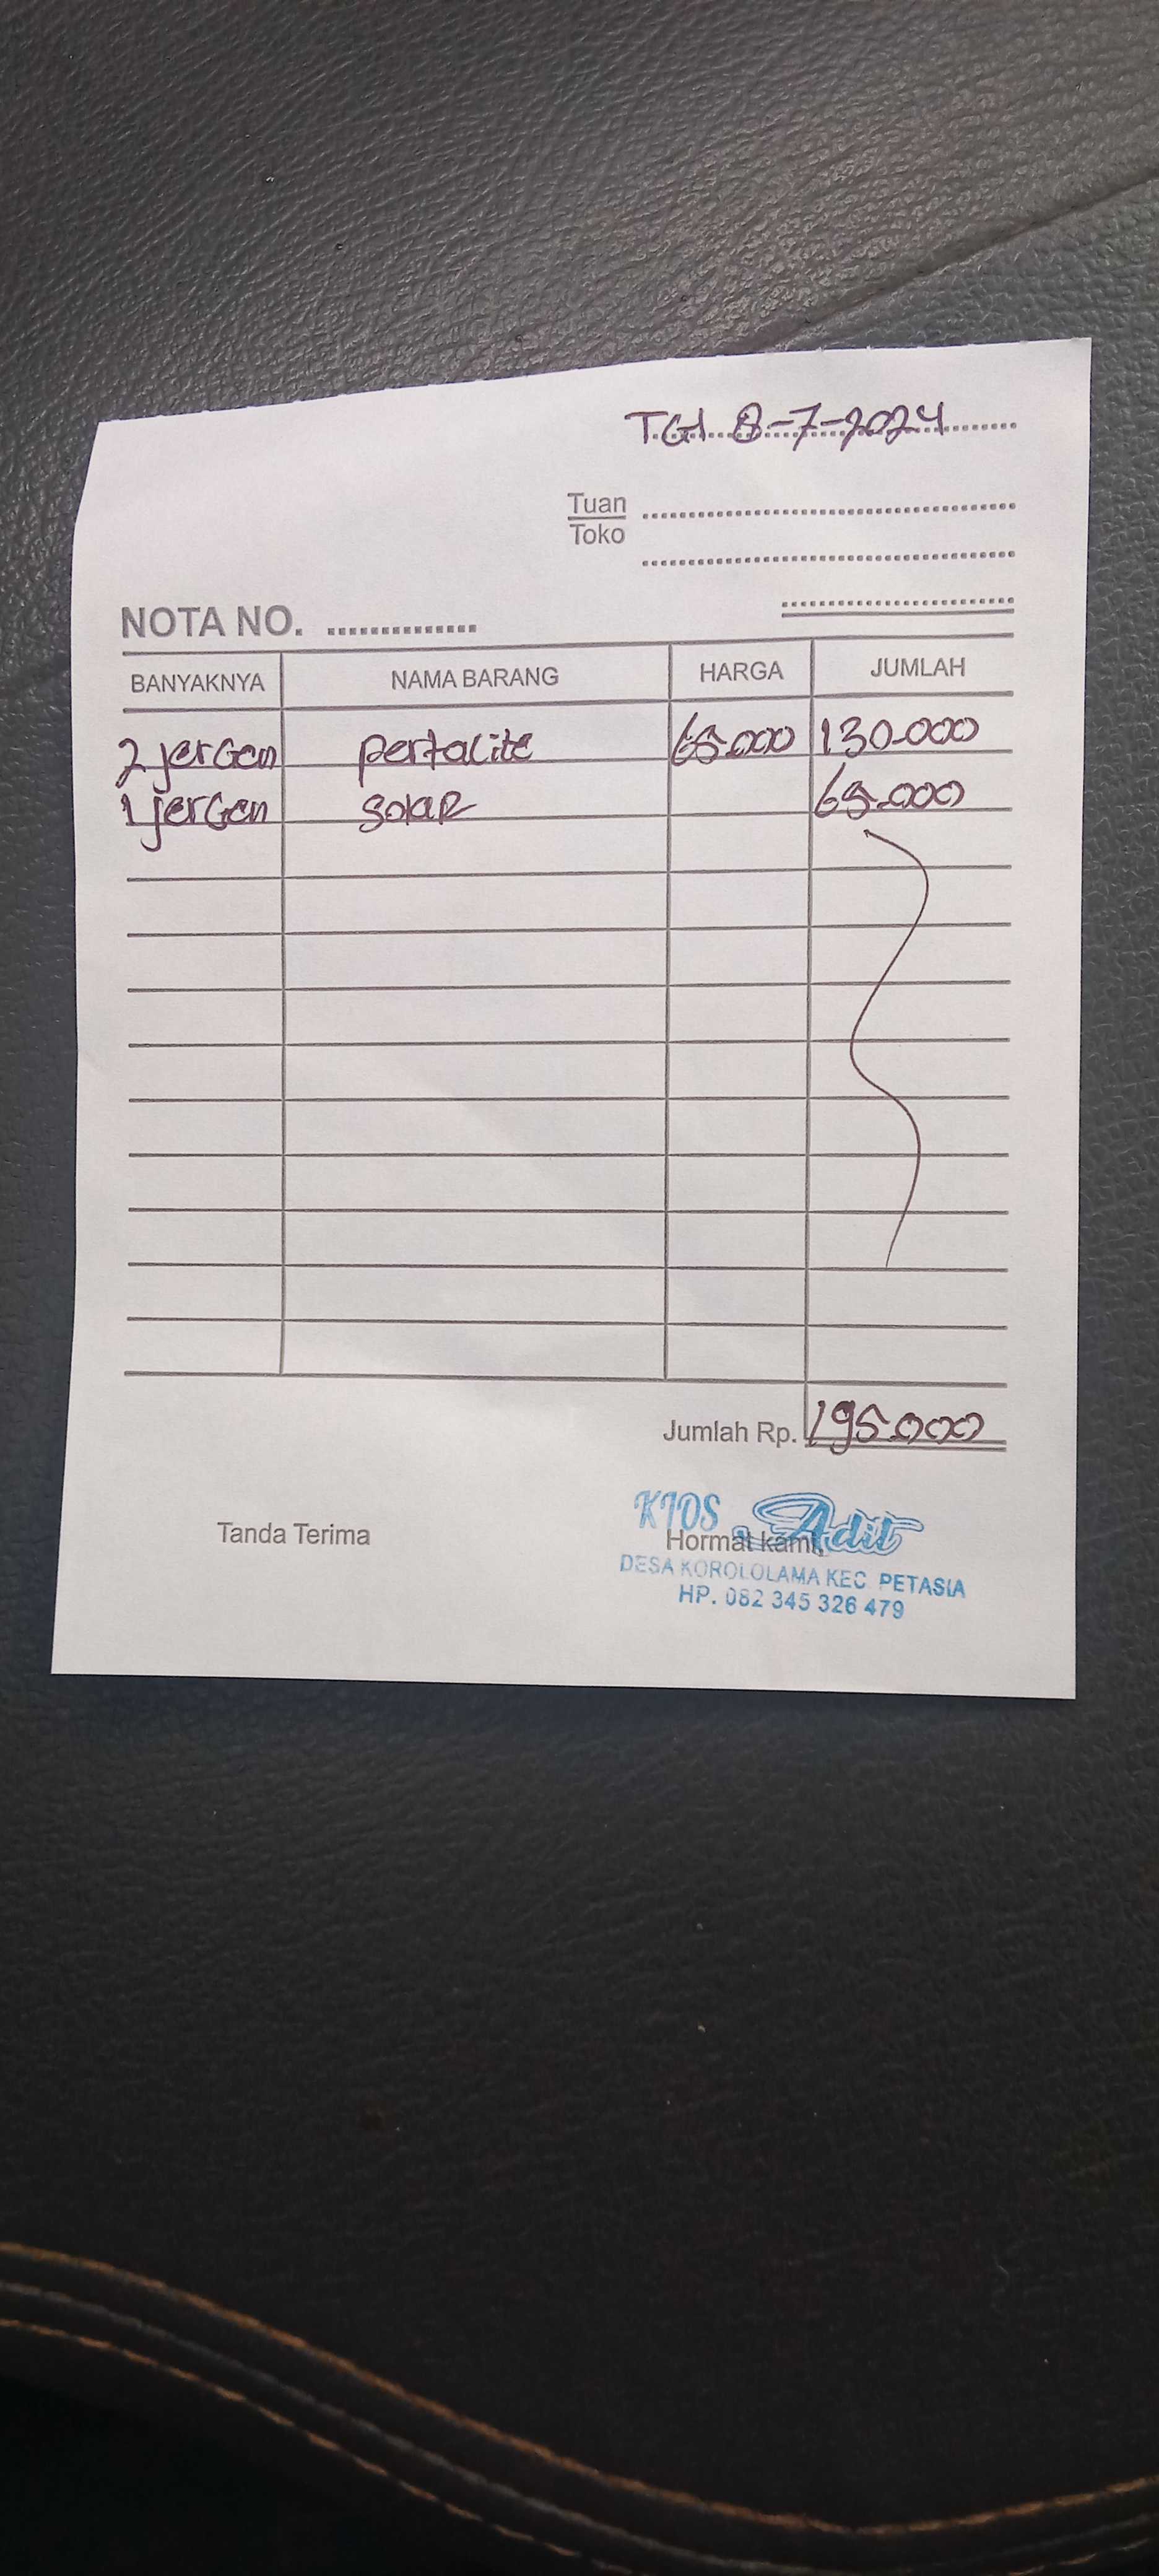 TGl. 8-7-2024
Tuan
Toko
NOTA NO.
BANYAKNYA NAMA BARANG HARGA JUMLAH
2 jerGen pertalite 65.000 130.000
1 jerGen solar 65.000
Jumlah Rp. 195.000
Tanda Terima Hormat kami,
KIOS Adit
DESA KOROLOLAMA KEC PETASIA
HP. 082 345 326 479